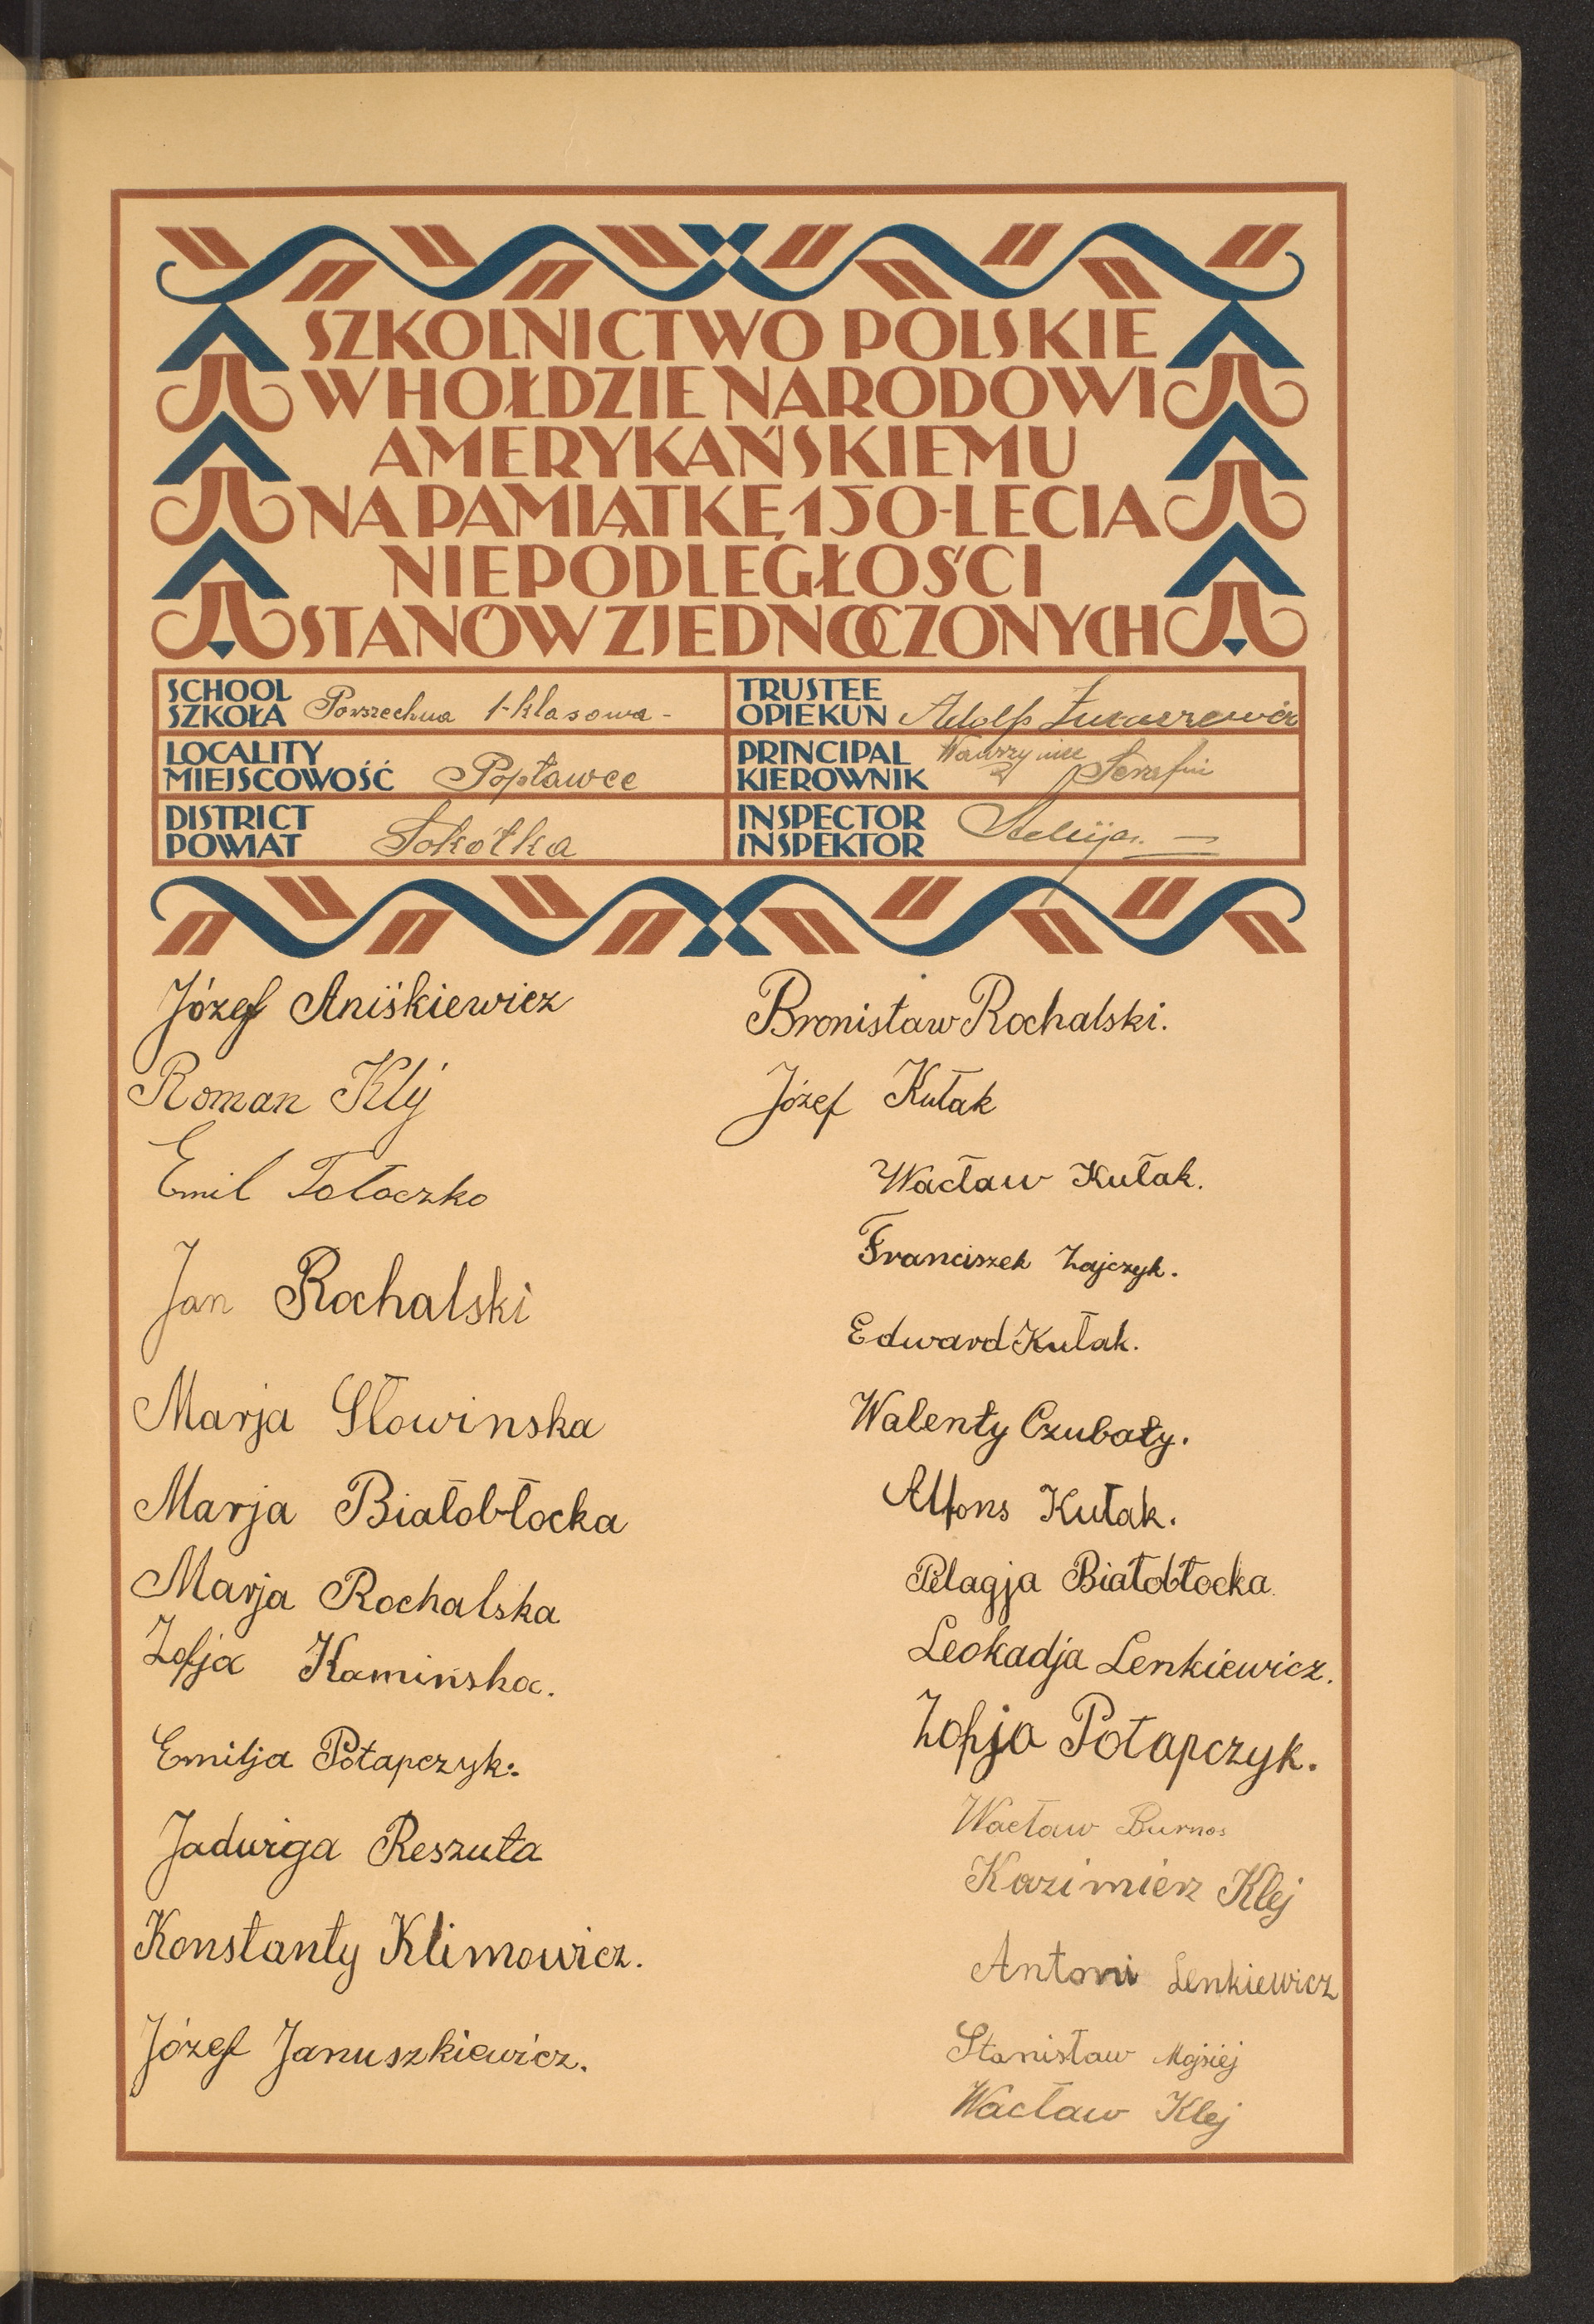 SZKOLNICTWO POLSKIE
W HOŁDZIE NARODOWI
AMERYKAŃSKIEMU
NA PAMIĄTKĘ 150-LECIA
NIEPODLEGŁOŚCI
STANÓW ZJEDNOCZONYCH
SCHOOL
SZKOŁA Powszechna 1-klasowa -
TRUSTEE
OPIEKUN Adolf Łukaszewicz
LOCALITY
MIEJSCOWOŚĆ Popławce
PRINCIPAL
KIEROWNIK Wawrzyniec Serafin
DISTRICT
POWIAT Sokółka
INSPECTOR
INSPEKTOR
Józef Aniśkiewicz
Roman Klij
Emil Tołoczko
Jan Rochalski
Marja Słowinska
Marja Białobłocka
Marja Rochalska
Zofja Kamińska.
Emilja Potapczyk.
Jadwiga Reszuta
Konstanty Klimowicz.
Józef Januszkiewicz.
Bronisław Rochalski.
Józef Kułak
Wacław Kułak.
Franciszek Zajczyk.
Edward Kułak.
Walenty Czubaty.
Alfons Kułak.
Pelagja Białobłocka.
Leokadja Lenkiewicz.
Zofja Potapczyk.
Wacław Burnos
Kazimierz Klej
Antoni Lenkiewicz
Stanisław Mojsiej
Wacław Klej